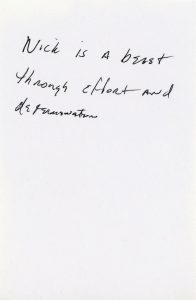 Nick is a beast
through effort and
determination